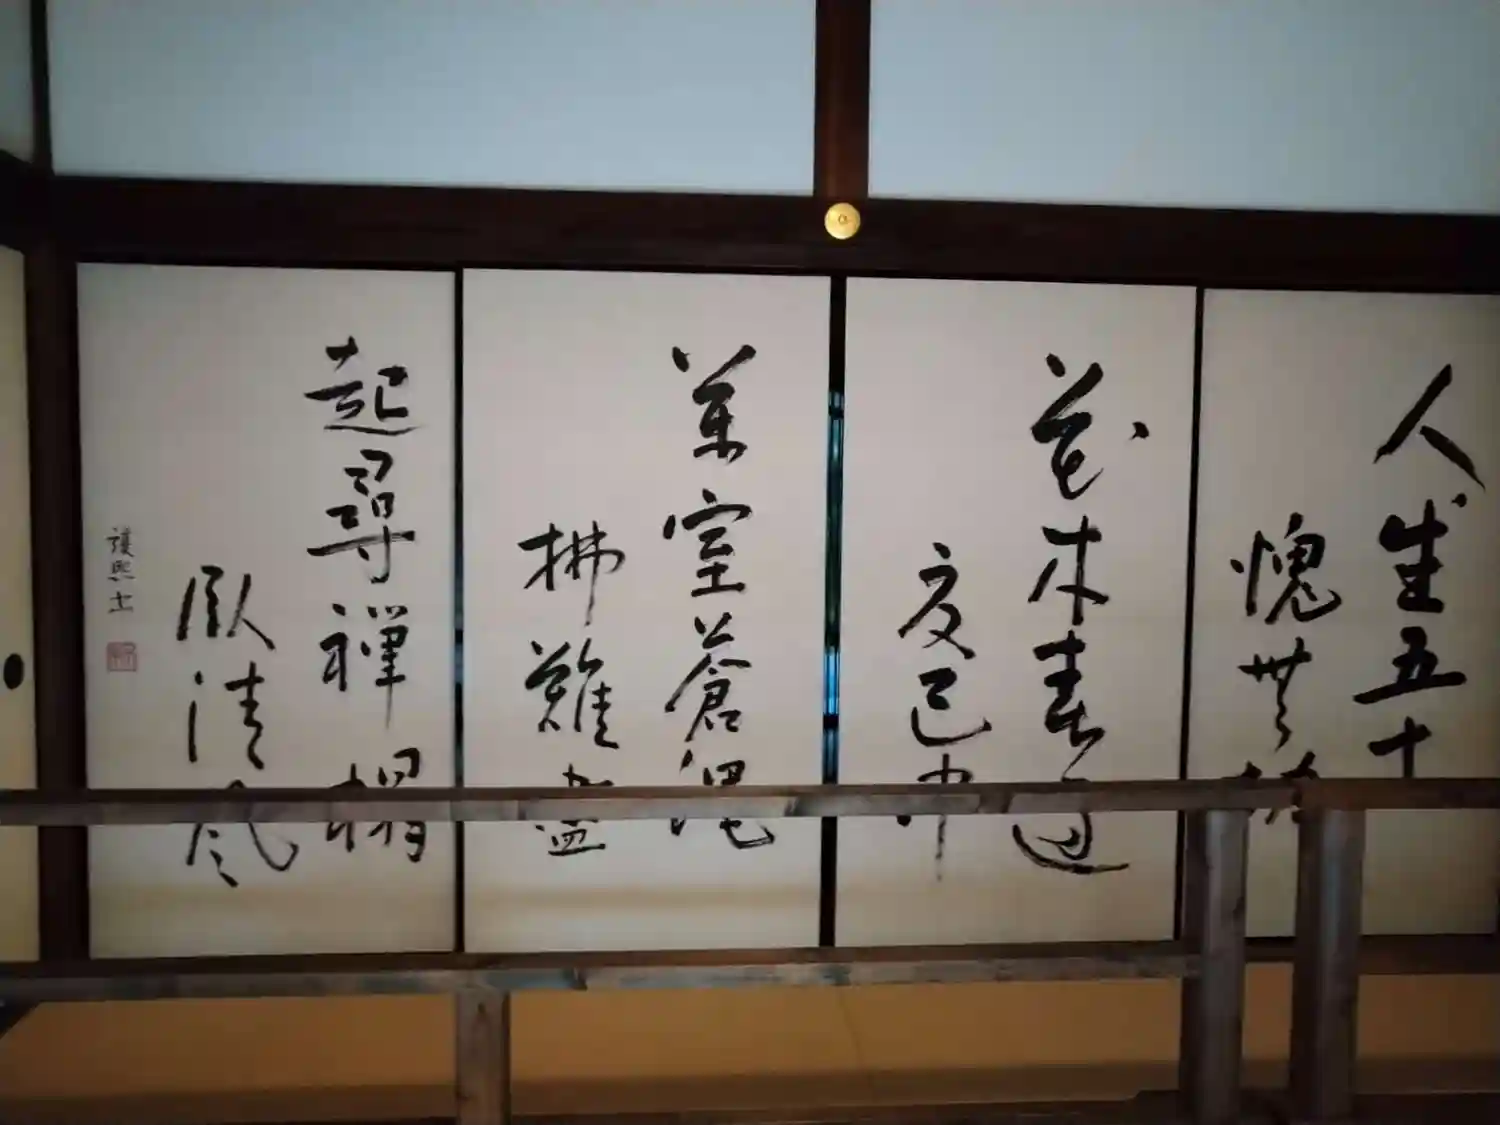 人生五十
愧無功
花木春過
夏已中
萬室蒼蠅
拂難盡
起尋禪榻
臥清風
護熙